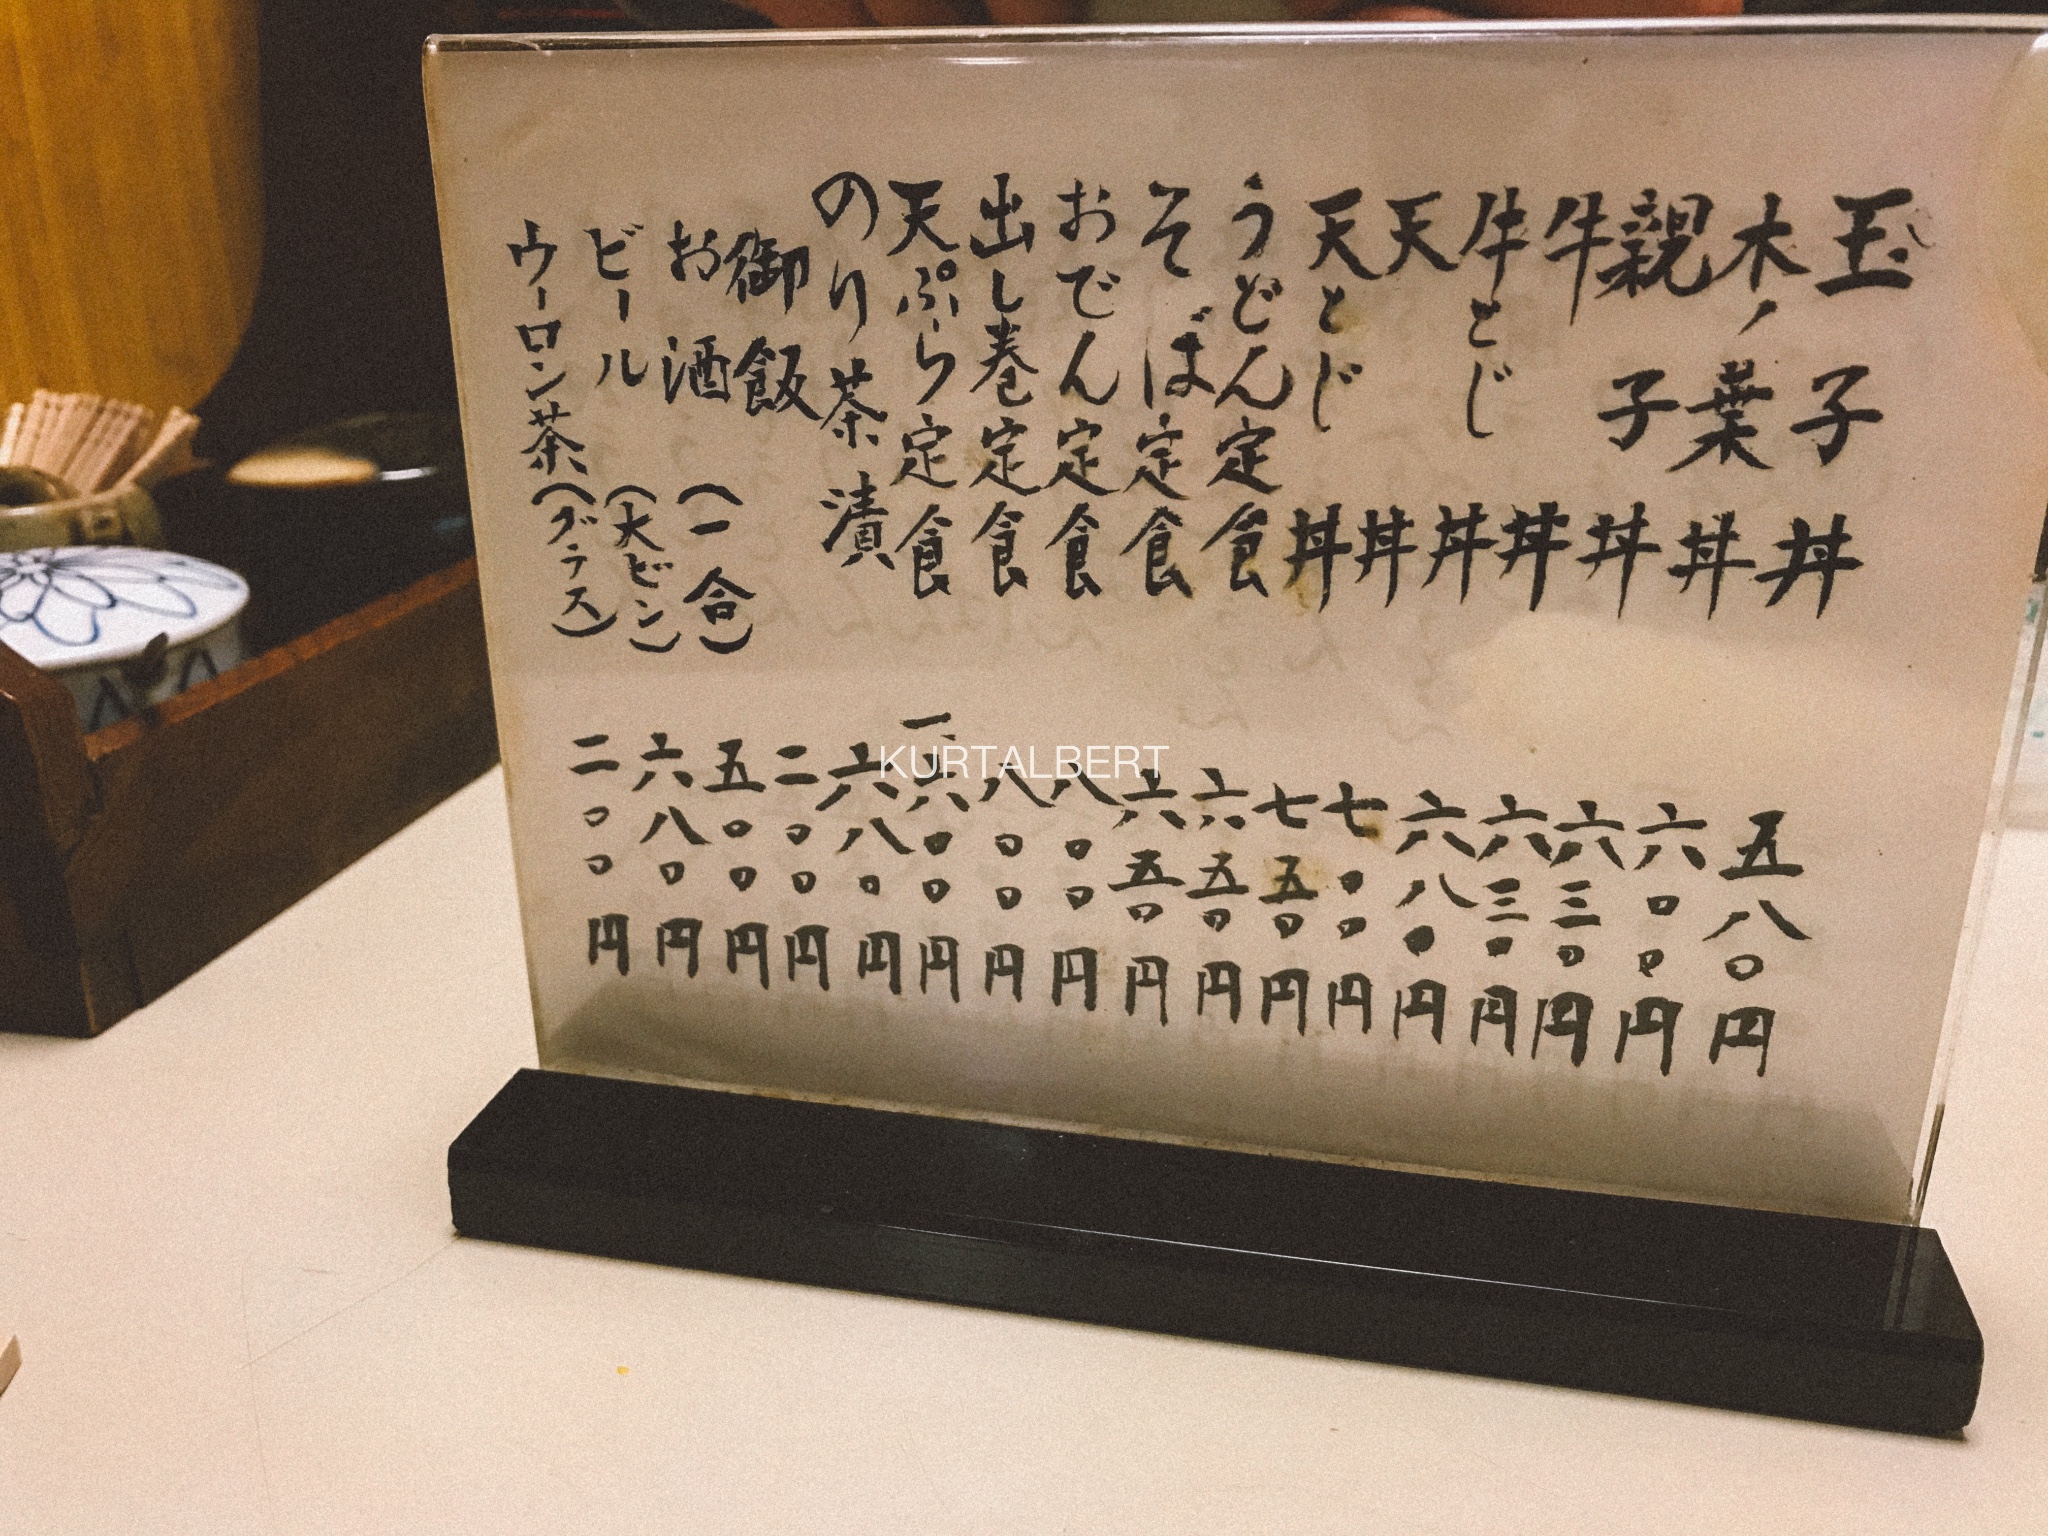 玉子丼 五八〇円
木ノ葉丼 六〇〇円
親子丼 六三〇円
牛丼 六三〇円
牛とじ丼 六八〇円
天丼 七〇〇円
天とじ丼 七五〇円
うどん定食 六五〇円
そば定食 六五〇円
おでん定食 八〇〇円
出し巻定食 八〇〇円
天ぷら定食 一、六〇〇円
のり茶漬 六八〇円
御飯 二〇〇円
お酒(一合) 五〇〇円
ビール(大ビン) 六八〇円
ウーロン茶(グラス) 二〇〇円
KURTALBERT